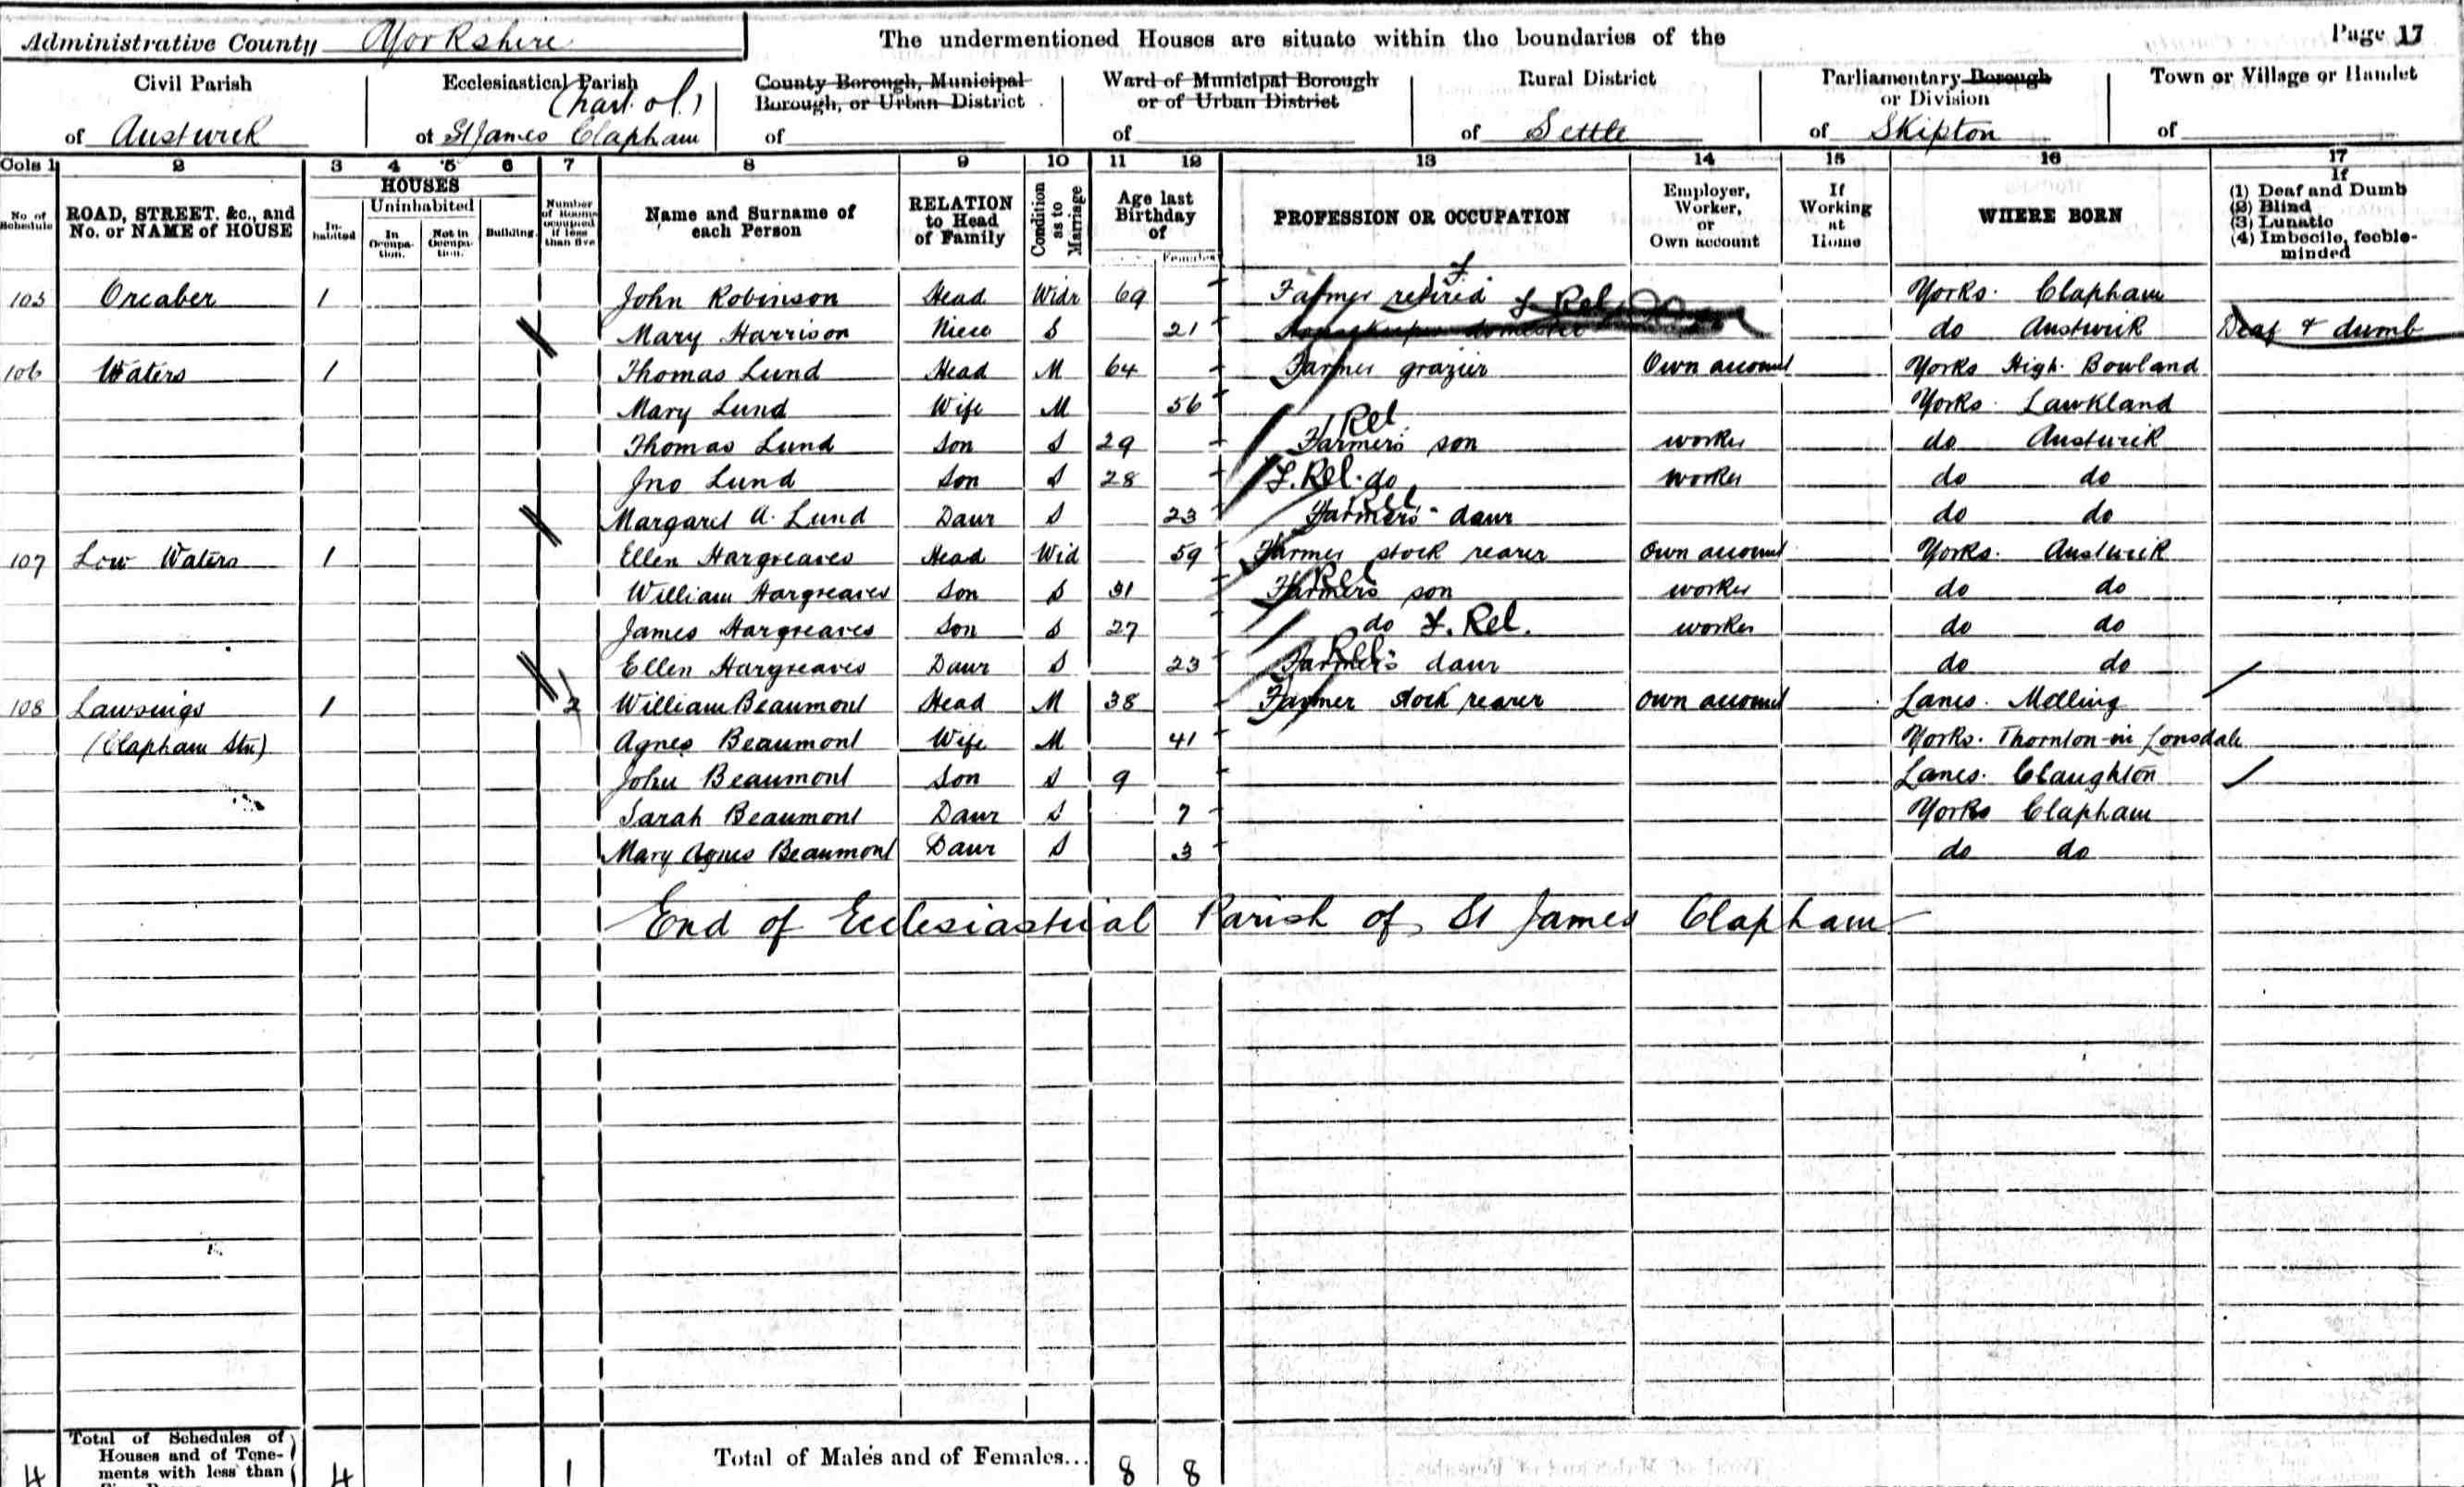 Administrative County Yorkshire The undermentioned Houses are situate within the boundaries of the Page 17
Civil Parish Ecclesiastical Parish County Borough, Municipal Borough, or Urban District Ward of Municipal Borough or of Urban District Rural District Parliamentary Borough or Division Town or Village or Hamlet
(part of)
of Austwick of St James Clapham of of of Settle of Skipton of
Cols 1 2 3 4 5 6 7 8 9 10 11 12 13 14 15 16 17
No. of Schedule ROAD, STREET, &c., and No. or NAME of HOUSE HOUSES Inhabited Uninhabited In Occupation. Not in Occupation. Building. Number of Rooms occupied if less than five Name and Surname of each Person RELATION to Head of Family Condition as to Marriage Age last Birthday of Females PROFESSION OR OCCUPATION Employer, Worker, or Own account If Working at Home WHERE BORN If (1) Deaf and Dumb (2) Blind (3) Lunatic (4) Imbecile, feeble-minded
105 Orcaber 1 John Robinson Head Widr 69 Farmer retired Yorks. Clapham
Mary Harrison Niece S 21 F Rel do Austwick Deaf & dumb
106 Waters 1 Thomas Lund Head M 64 Farmer grazier Own account Yorks High Bowland
Mary Lund Wife M 56 Yorks. Lawkland
Thomas Lund Son S 29 Farmer's son Rel worker do Austwick
Jno Lund Son S 28 F. Rel. do worker do do
Margaret A. Lund Daur S 23 Farmer's daur Rel do do
107 Low Waters 1 Ellen Hargreaves Head Wid 59 Farmer stock rearer Own account Yorks. Austwick
William Hargreaves Son S 31 Farmers son Rel worker do do
James Hargreaves Son S 27 do F. Rel. worker do do
Ellen Hargreaves Daur S 23 Farmer's daur Rel do do
108 Lawsings 1 2 William Beaumont Head M 38 Farmer stock rearer Own account Lancs. Melling
(Clapham Stn) Agnes Beaumont Wife M 41 Yorks. Thornton-in Lonsdale
John Beaumont Son S 9 Lancs. Claughton
Sarah Beaumont Daur S 7 Yorks Clapham
Mary Agnes Beaumont Daur S 3 do do
End of Ecclesiastical Parish of St James Clapham
4 Total of Schedules of Houses and of Tenements with less than 4 1 Total of Males and of Females... 8 8